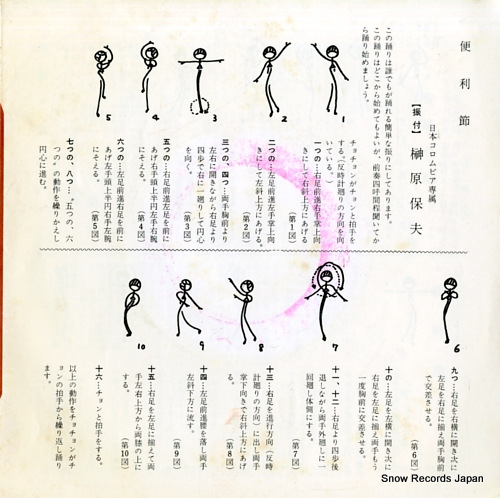 便利節
日本コロムビア専属
【振付】 榊原保夫
この踊りは誰でもが踊れる簡単な振りにしてあります。
この踊りはどこから始めてもよいが、前奏四呼間程聞いてか
ら踊り始めましょう。
チョチョンがチョンと拍手を
する。(反時計廻りの方向を向
いている。)
一つの…右足前進右手掌上向
きにして右斜上方にあげる
(第1図)
二つの…左足前進左手掌上向
きにして左斜上方にあげる。
(第2図)
三つの、四つ…両手胸前より
左右に開きながら右足より
四歩で右に一廻りして円心
を向く。
(第3図)
五つの…右足前進左足を前に
あげ右手頭上半円左手右腕
にそえる。
(第4図)
六つの…左足前進右足を前に
あげ左手頭上半円右手左腕
にそえる。
(第5図)
七つの、八つ…『五つの、六
つの』の動作を繰りかえし
円心に進む。
1
2
3
4
5
九つ…右足を右横に開き次に
左足を右足に揃え両手胸前
で交差させる。
(第6図)
十の…左足を左横に開き次に
右足を左足に揃え両手もう
一度胸前に交差させる。
十一、十二…右足より四歩後
退しながら両手外廻しに一
回廻し体側にする。
(第7図)
十三…右足を進行方向(反時
計廻りの方向)に出し両手
掌下向きで右斜上方にあげ
る。
(第8図)
十四…左足前進腰を落し両手
左斜下方に流す。
(第9図)
十五…右足を左足に揃えて両
手左右上方から両膝の上に
する。
(第10図)
十六…チョンと拍手をする。
以上の動作をチョチョンがチ
ョンの拍手から繰り返し踊り
ます。
6
7
8
9
10
Snow Records Japan